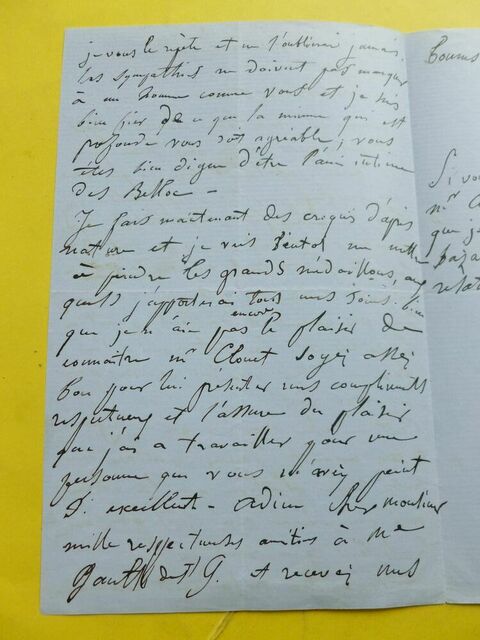 je vous le répète et ne l'oublierai jamais.
les sympathies ne doivent pas manquer
à un homme comme vous et je suis
bien fier de ce que la mienne qui est
profonde vous soit agréable, vous
êtes bien digne d'être l'ami intime
des Belloc -
Je fais maintenant des croquis d'après
nature et je vais bientôt me mettre
à peindre les grands médaillons, aux
quels j'apporterai tous mes soins. bien
que je n'aie pas encore le plaisir de
connaître mr Clouet soyez assez
bon pour lui présenter mes compliments
respectueux et l'assurer du plaisir
que j'ai a travailler pour une
personne que vous m'avez peint
si excellent - adieu cher monsieur
mille respectueuses amitiés à me
Gault de St G. et recevez mes
Si vo
mr C
que je
relat